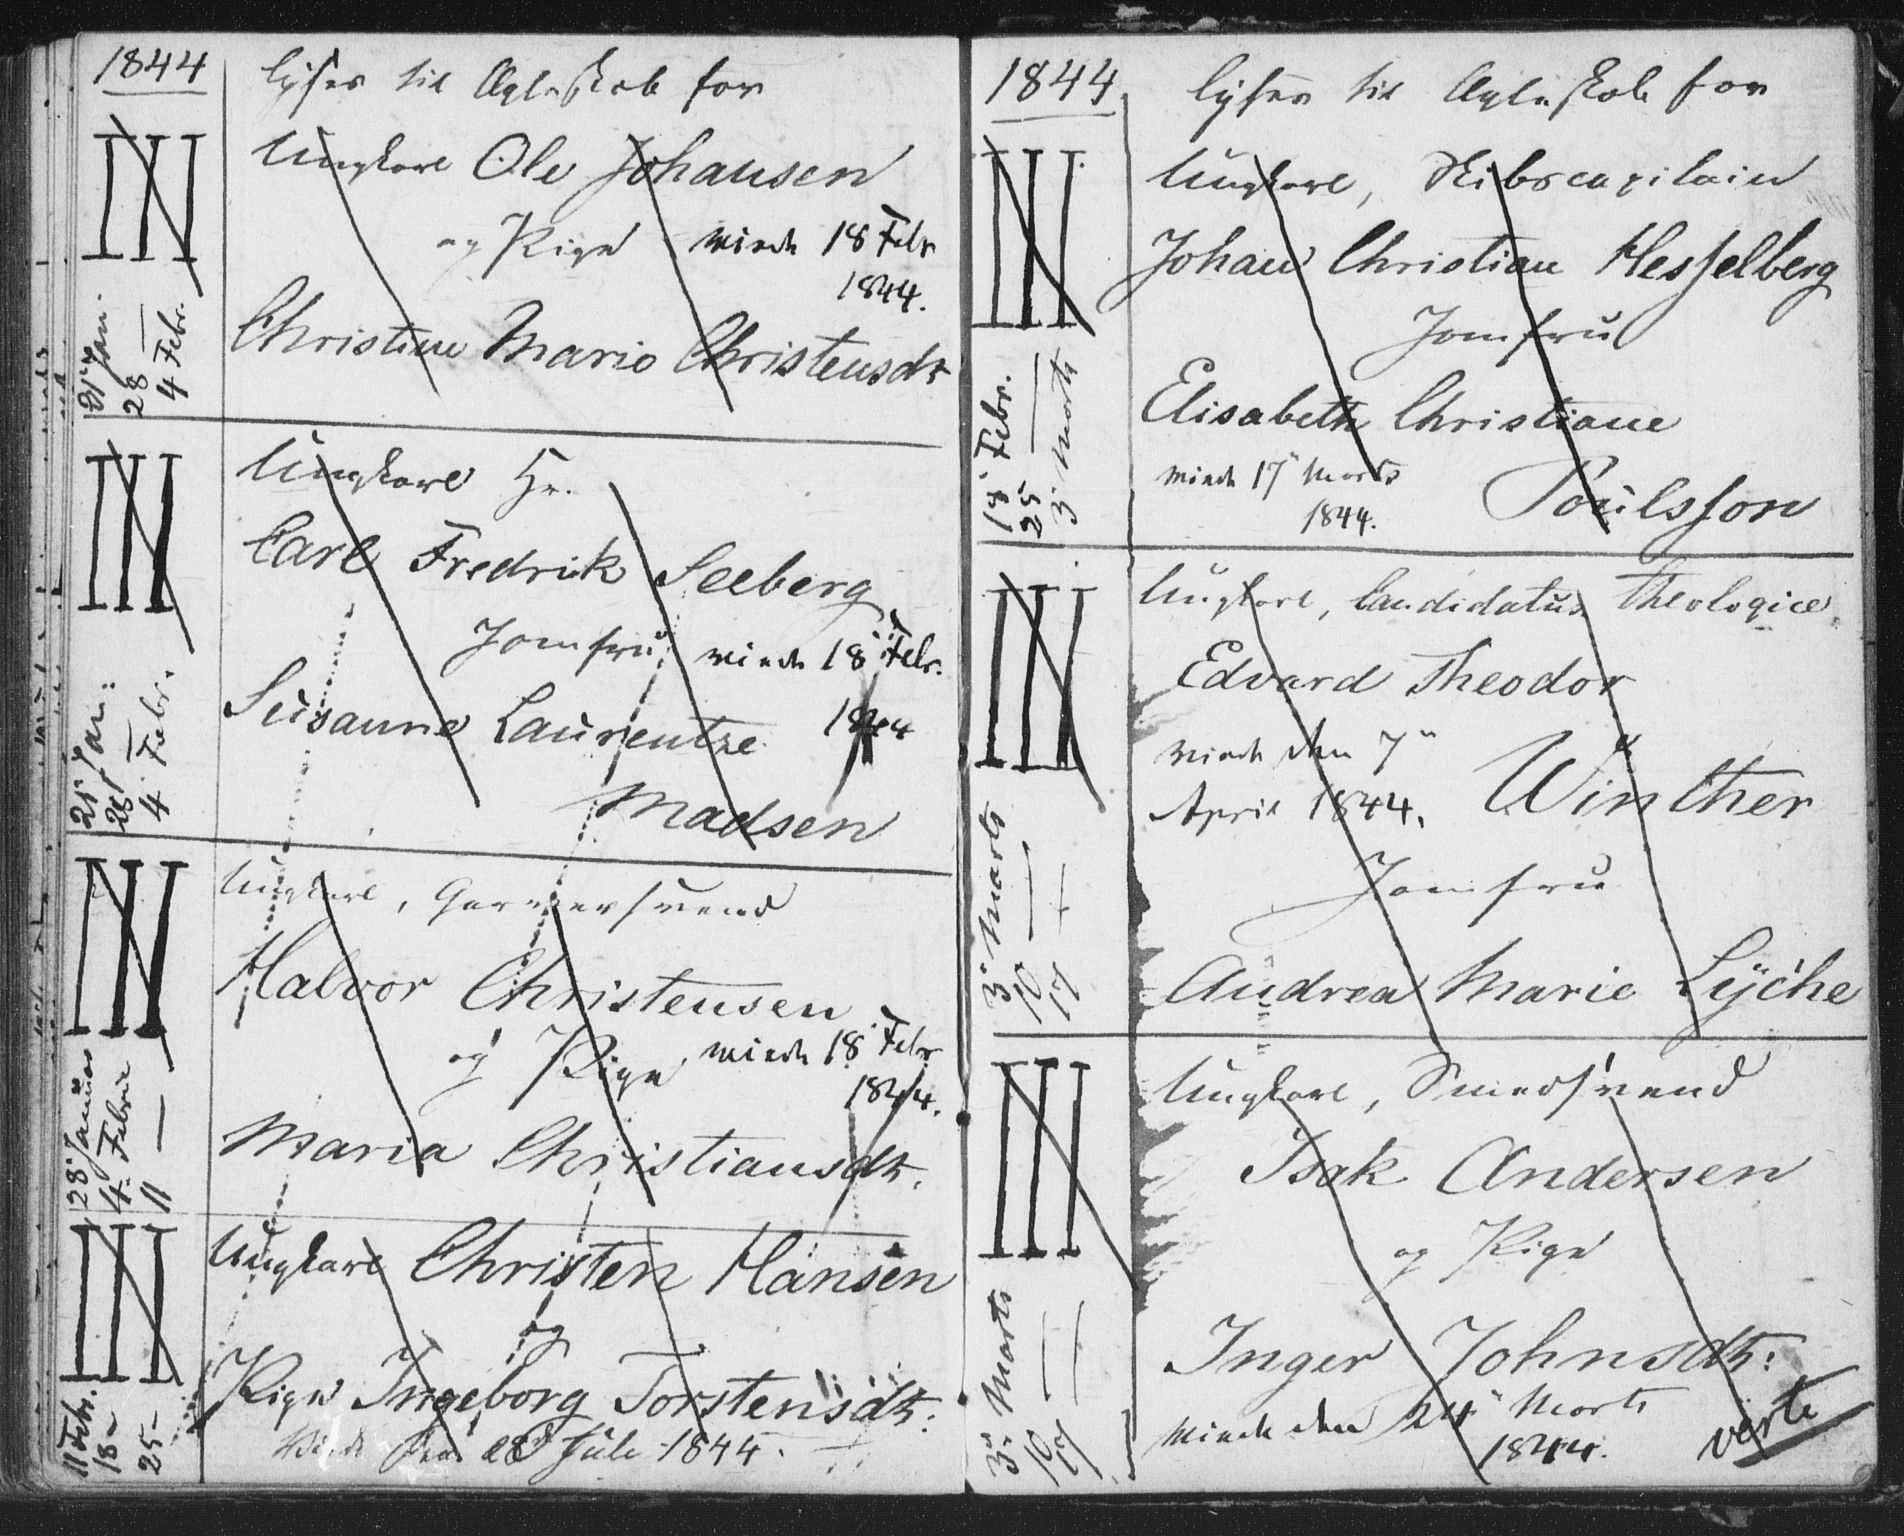 1844
lyses til Ægteskab for
III
21 Jan:
28 —
4 Febr.
Ungkarl Ole Johansen
og Pige viede 18 Febr
1844.
Christine Marie Christensdtr
III
21 Jan:
28 —
4 Febr.
Ungkarl Hr.
Carl Fredrik Seeberg
Jomfru viede 18 Febr.
1844
Susanne Laurentze
Madsen
III
28 Januar
4. Februar
11 —
Ungkarl, Garversvend
Halvor Christensen
og Pige viede 18 Febr
1844.
Maria Christiansdtr.
III
11 Febr.
18 –
25 –
Ungkarl Christen Hansen
og
Pige Ingeborg Torstensdtr:
viede den 28 Juli 1844.
1844
lyses til Ægteskab for
III
18 Febr.
25 —
3 Marts
Ungkarl, Skibscapitain
Johan Christian Hesselberg
Jomfru
Elisabeth Christiane
viede 17 Marts
1844.
Poulsson
III
3 Marts
10 —
17 —
Ungkarl, Candidatus Theologice
Edvard Theodor
viede den 7
April 1844.
Winther
Jomfru
Andrea Marie Lyche
III
3 Marts
10 —
17 —
Ungkarl, Smedsvend
Isak Andersen
og Pige
Inger Johnsdtr:
viede den 24 Marts
1844.
verte